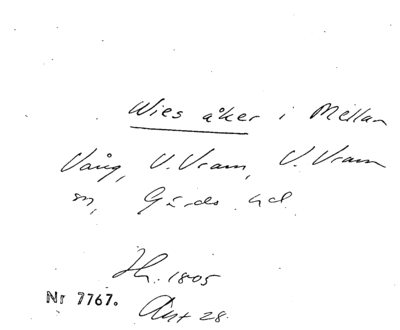 Wies åker i Mellan
Vång, V. Vram, V. Vram
sn, Gärds hd.
Jh. 1805
Nr 7767.
Akt 28.